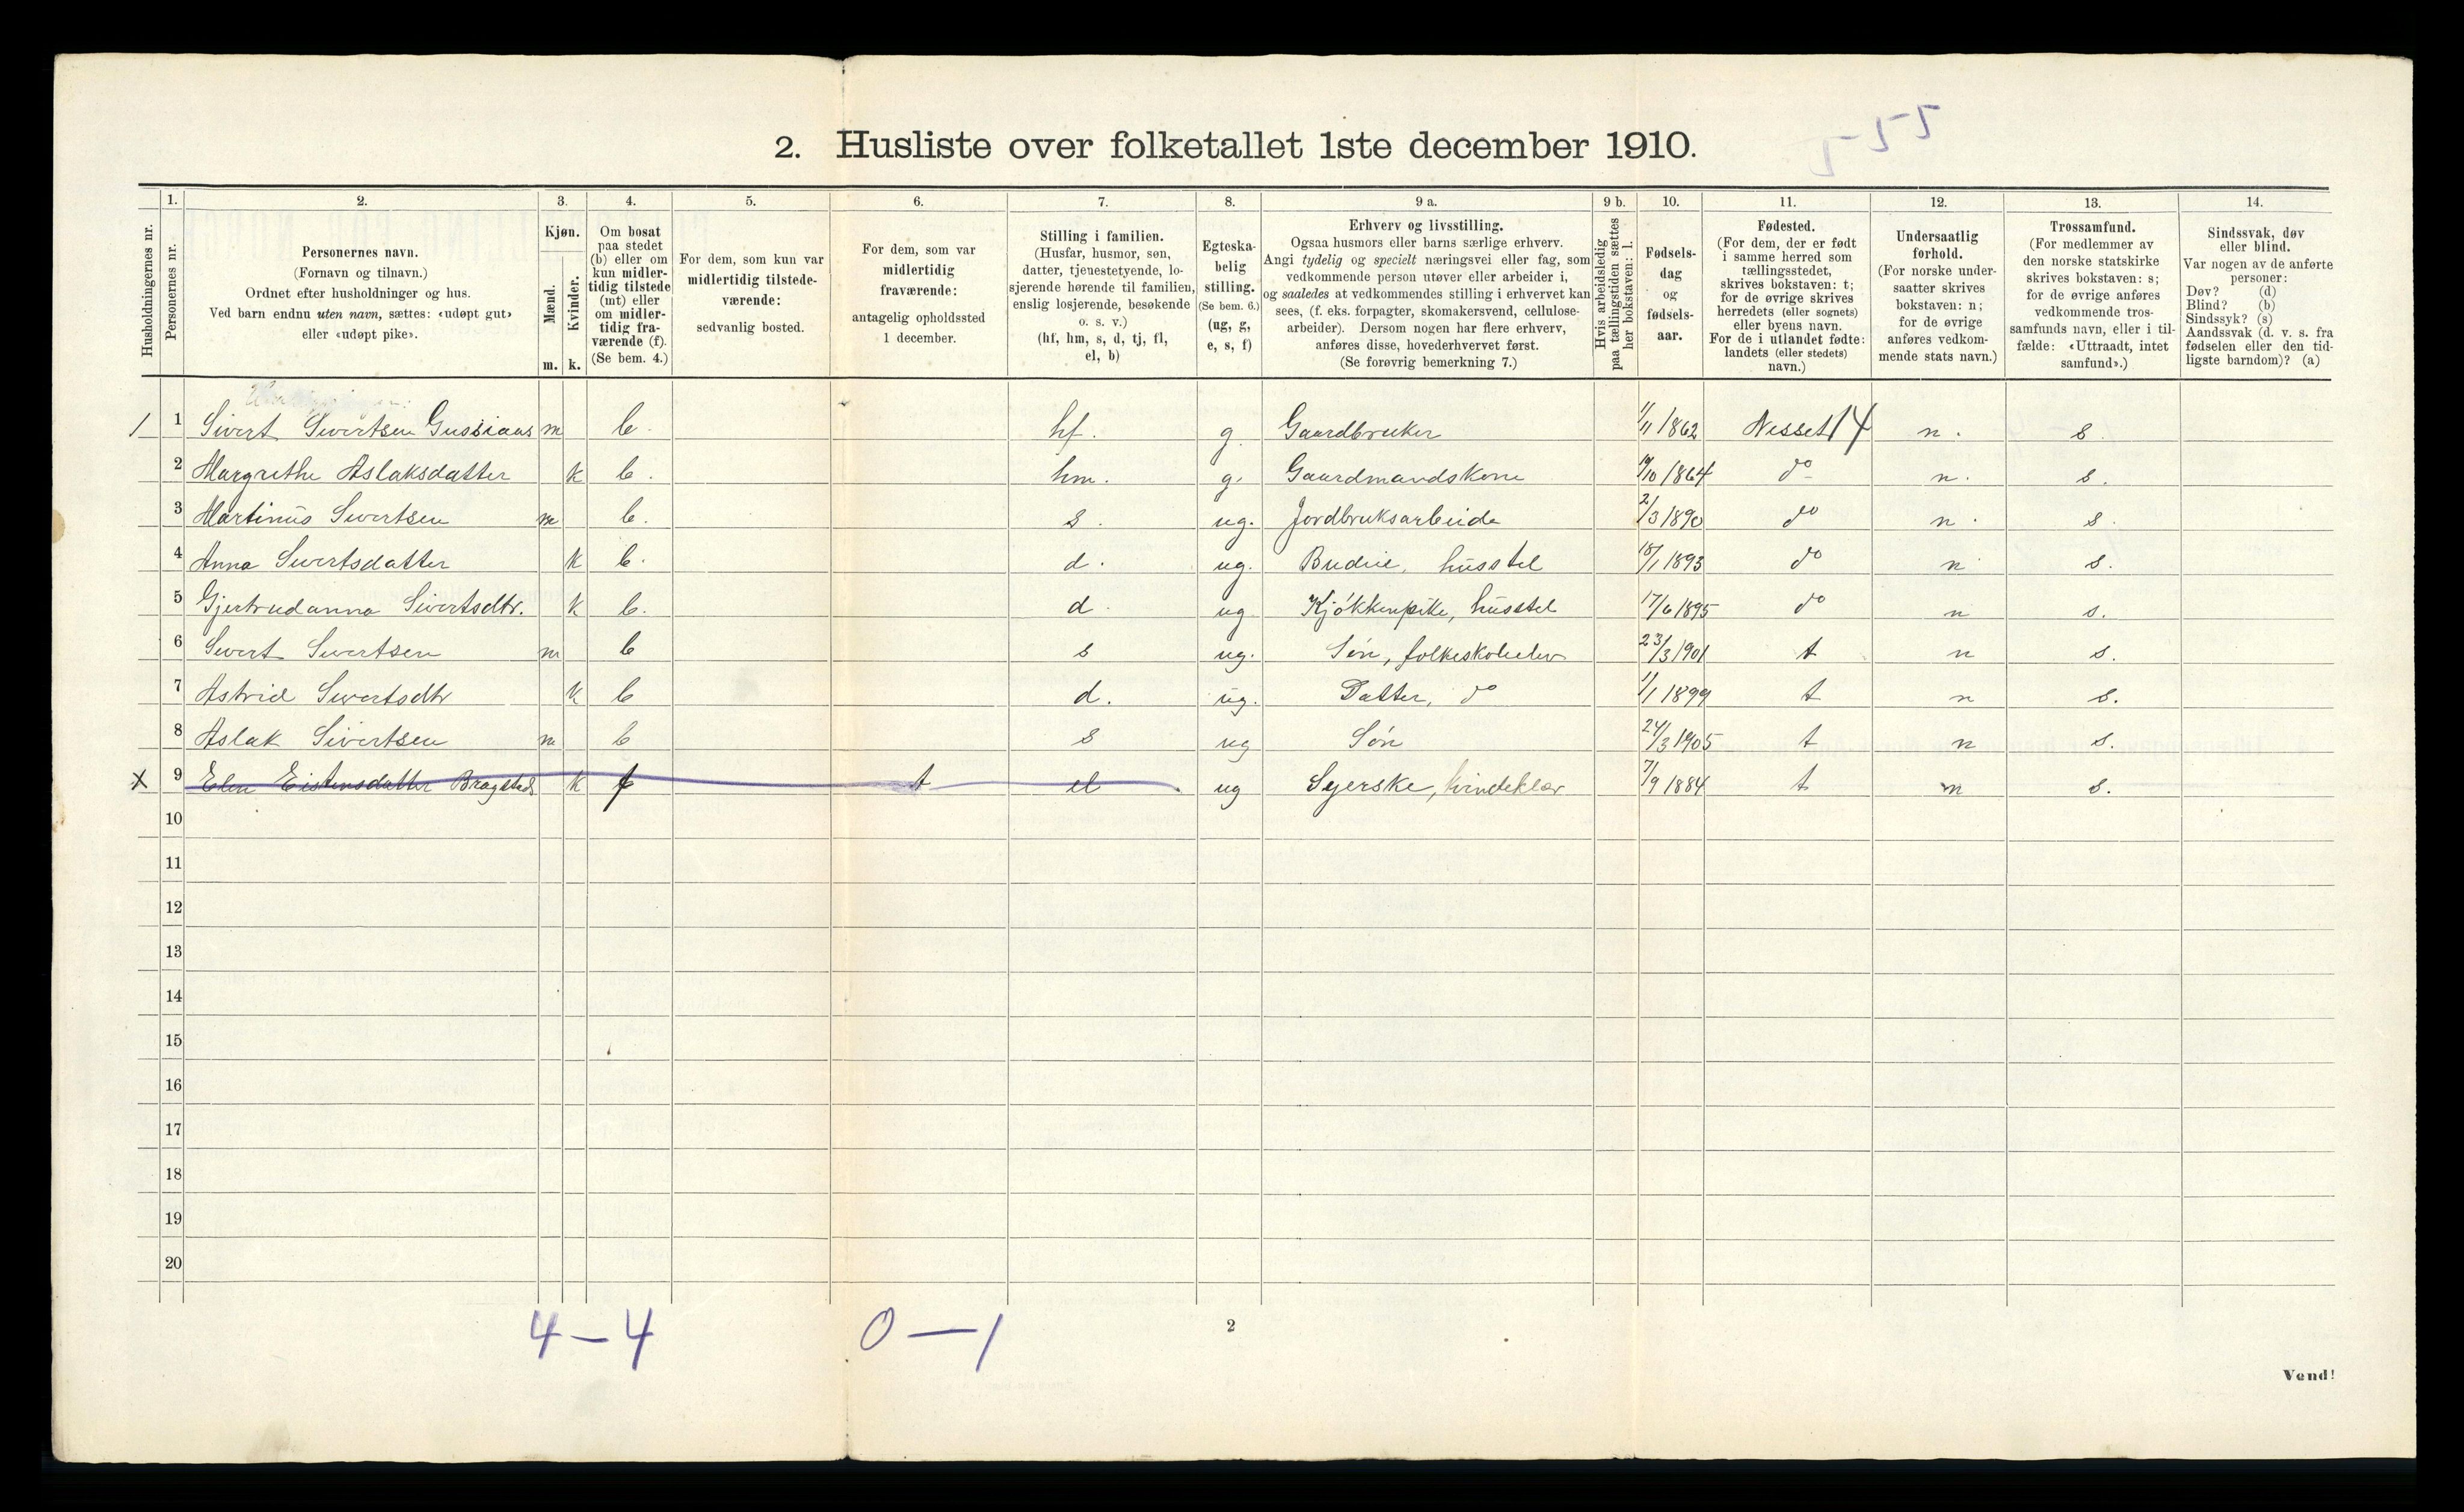 5-55
2. Husliste over folketallet 1ste december 1910.
Husholdningernes nr.
1.
Personernes nr.
2.
Personernes navn.
(Fornavn og tilnavn.)
Ordnet efter husholdninger og hus.
Ved barn endnu uten navn, sættes: «udøpt gut»
eller «udøpt pike».
3.
Kjøn.
Mænd.
Kvinder.
m. k.
4.
Om bosat
paa stedet
(b) eller om
kun midler-
tidig tilstede
(mt) eller
om midler-
tidig fra-
værende (f).
(Se bem. 4.)
5.
For dem, som kun var
midlertidig tilstede-
værende:
sedvanlig bosted.
6.
For dem, som var
midlertidig
fraværende:
antagelig opholdssted
1 december.
7.
Stilling i familien.
(Husfar, husmor, søn,
datter, tjenestetyende, lo-
sjerende hørende til familien,
enslig losjerende, besøkende
o. s. v.)
(hf, hm, s, d, tj, fl,
el, b)
8.
Egteska-
belig
stilling.
(Se bem. 6.)
(ug, g,
e, s, f)
9 a.
Erhverv og livsstilling.
Ogsaa husmors eller barns særlige erhverv.
Angi tydelig og specielt næringsvei eller fag, som
vedkommende person utøver eller arbeider i,
og saaledes at vedkommendes stilling i erhvervet kan
sees, (f. eks. forpagter, skomakersvend, cellulose-
arbeider). Dersom nogen har flere erhverv,
anføres disse, hovederhvervet først.
(Se forøvrig bemerkning 7.)
9 b.
Hvis arbeidsledig
paa tællingstiden sættes
her bokstaven: l.
10.
Fødsels-
dag
og
fødsels-
aar.
11.
Fødested.
(For dem, der er født
i samme herred som
tællingsstedet,
skrives bokstaven: t;
for de øvrige skrives
herredets (eller sognets)
eller byens navn.
For de i utlandet fødte:
landets (eller stedets)
navn.)
12.
Undersaatlig
forhold.
(For norske under-
saatter skrives
bokstaven: n;
for de øvrige
anføres vedkom-
mende stats navn.)
13.
Trossamfund.
(For medlemmer av
den norske statskirke
skrives bokstaven: s;
for de øvrige anføres
vedkommende tros-
samfunds navn, eller i til-
fælde: «Uttraadt, intet
samfund».)
14.
Sindssvak, døv
eller blind.
Var nogen av de anførte
personer:
Døv? (d)
Blind? (b)
Sindssyk? (s)
Aandssvak (d. v. s. fra
fødselen eller den tid-
ligste barndom)? (a)
1 1 Sivert Sivertsen Gussiaas m b. hf. g. Gaardbruker 1/11 1862 Nesset 14 n. s.
2 Margrethe Aslaksdatter k b. hm. g. Gaardmandskone 19/10 1864 do n. s.
3 Martinus Sivertsen m b. s. ug. Jordbruksarbeide 2/3 1890 do n. s.
4 Anna Sivertsdatter k b. d. ug. Budeie, husstel 18/1 1893 do n s.
5 Gjertrudanna Sivertsdtr. k b. d. ug Kjökkenpike, husstel 17/6 1895 do n s.
6 Sivert Sivertsen m b s ug. Sön, folkeskoleelev 23/3 1901 t n s.
7 Astrid Sivertsdtr k b d. ug. Datter, do 1/1 1899 t n s.
8 Aslak Sivertsen m b s ug Sön 24/3 1905 t n s.
x 9 Elen Eistensdatter Bragstad k f t el ug Syerske, kvindeklær 7/9 1884 t n s.
10
11
12
13
14
15
16
17
18
19
20
4-4 0-1
2
Vend!